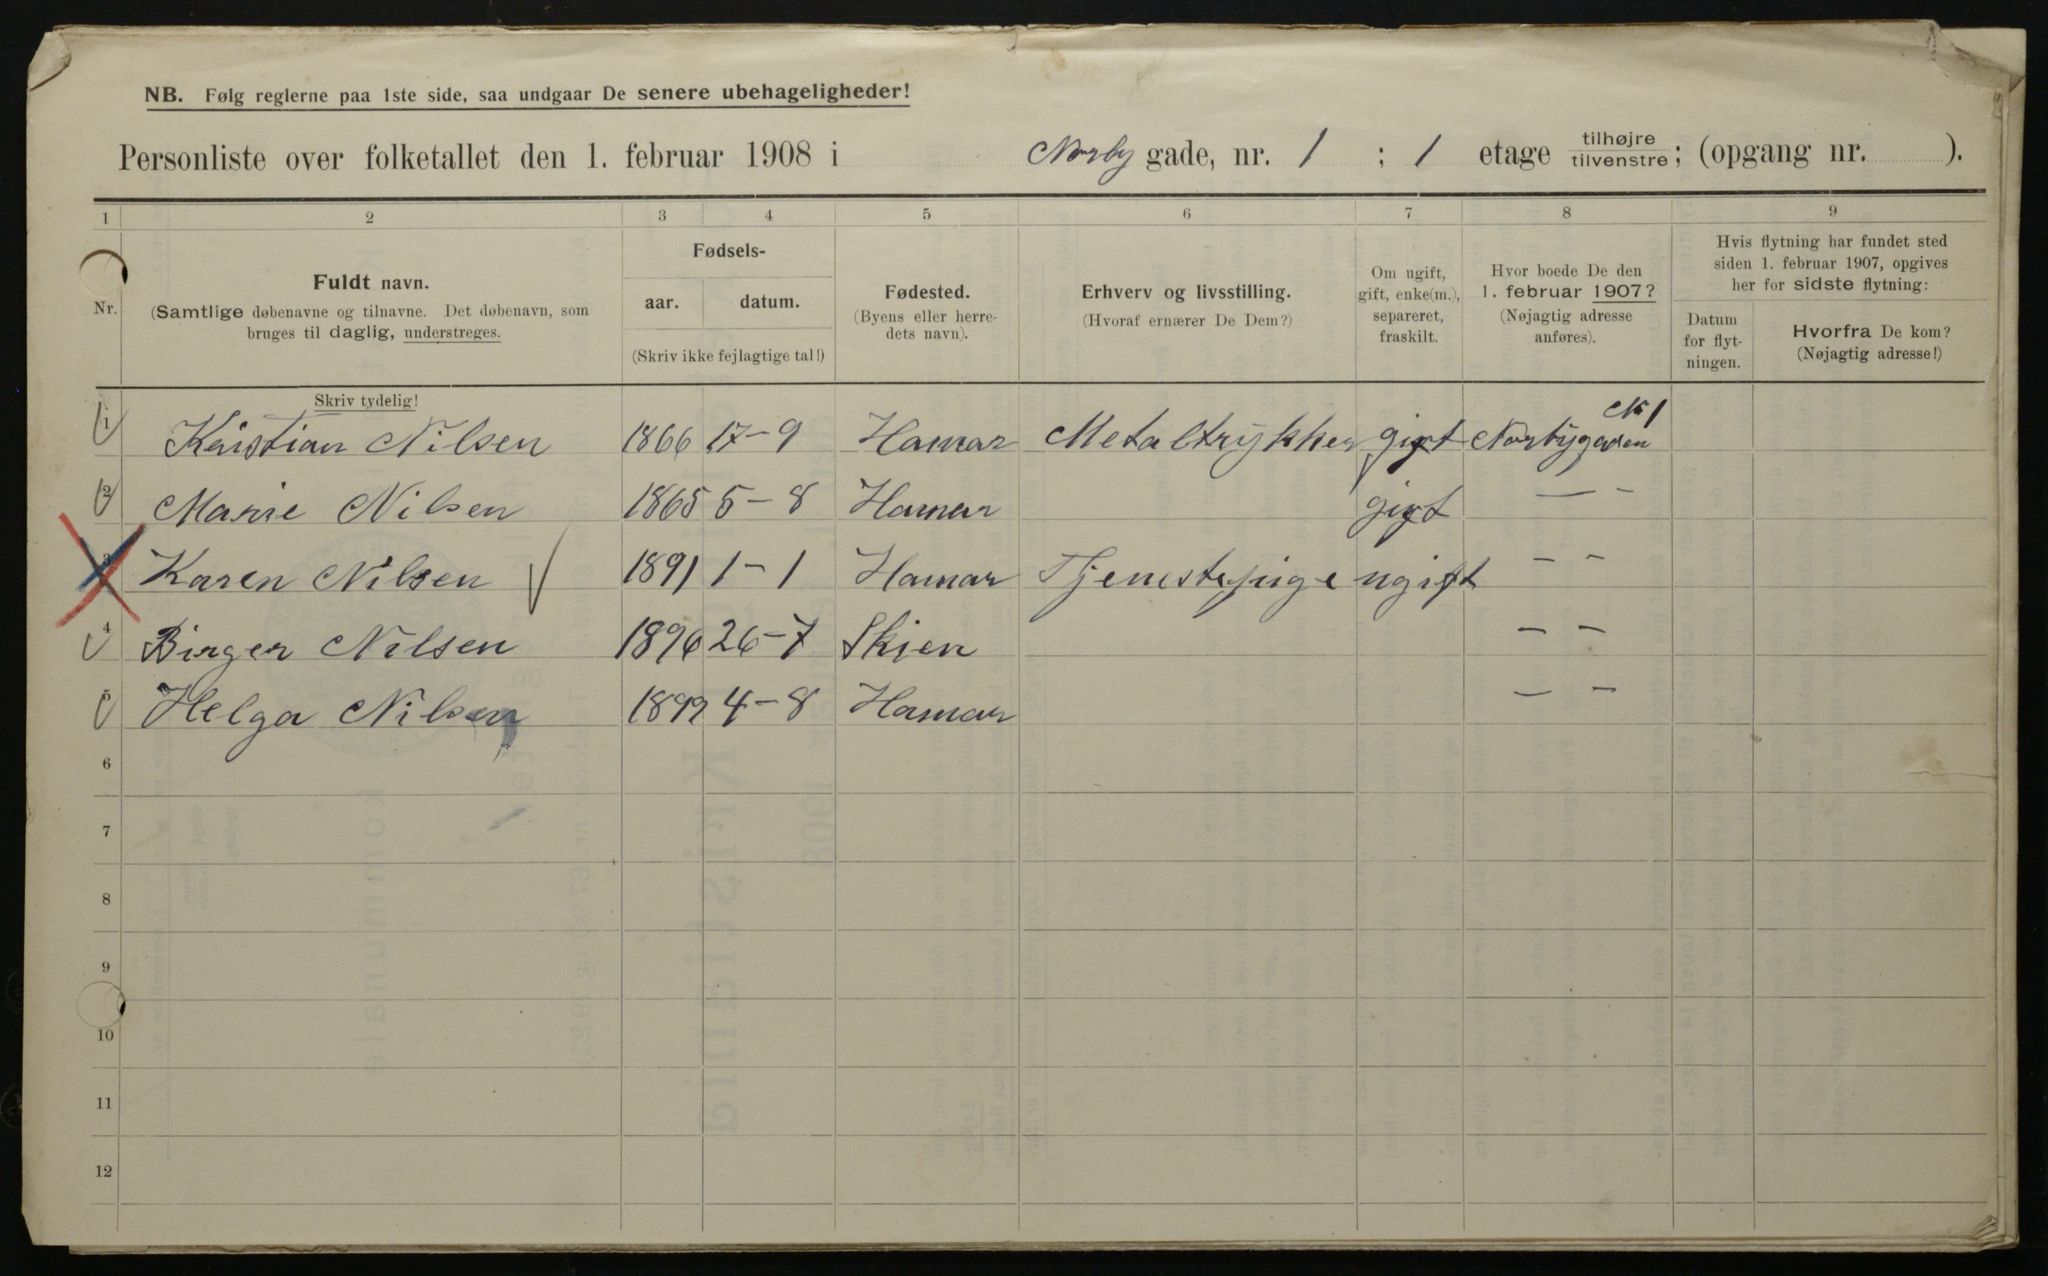 NB. Følg reglerne paa 1ste side, saa undgaar De senere ubehageligheder!
Personliste over folketallet den 1. februar 1908 i Norby gade, nr. 1 ; 1 etage tilhøjre tilvenstre ; (opgang nr. ).
1 2 3 4 5 6 7 8 9
Nr.
Fuldt navn.
(Samtlige døbenavne og tilnavne. Det døbenavn, som
bruges til daglig, understreges.
Skriv tydelig!
Fødsels-
aar. datum.
(Skriv ikke fejlagtige tal!)
Fødested.
(Byens eller herre-
dets navn).
Erhverv og livsstilling.
(Hvoraf ernærer De Dem?)
Om ugift,
gift, enke(m.),
separeret,
fraskilt.
Hvor boede De den
1. februar 1907?
(Nøjagtig adresse
anføres).
Hvis flytning har fundet sted
siden 1. februar 1907, opgives
her for sidste flytning:
Datum
for flyt-
ningen.
Hvorfra De kom?
(Nøjagtig adresse!)
1 Kristian Nilsen 1866 17-9 Hamar Metaltrykker gift Norbygaden No 1
2 Marie Nilsen 1865 5-8 Hamar gift — -
3 Karen Nilsen 1891 1-1 Hamar Tjenestepige ugift - -
4 Birger Nilsen 1896 26-7 Skien - -
5 Helga Nilsen 1899 4-8 Hamar - -
6
7
8
9
10
11
12